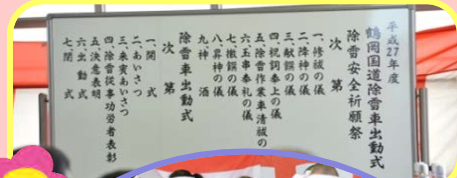 平成27年度
鶴岡国道除雪車出動式
除雪安全祈願祭
次第
一、修祓の儀
二、降神の儀
三、献饌の儀
四、祝詞奏上の儀
五、除雪作業車清祓の儀
六、玉串奉礼の儀
七、撤饌の儀
八、昇神の儀
九、神酒
除雪車出動式
次第
一、開式
二、あいさつ
三、来賓あいさつ
四、除雪従事功労者表彰
五、決意表明
六、出動式
七、閉式